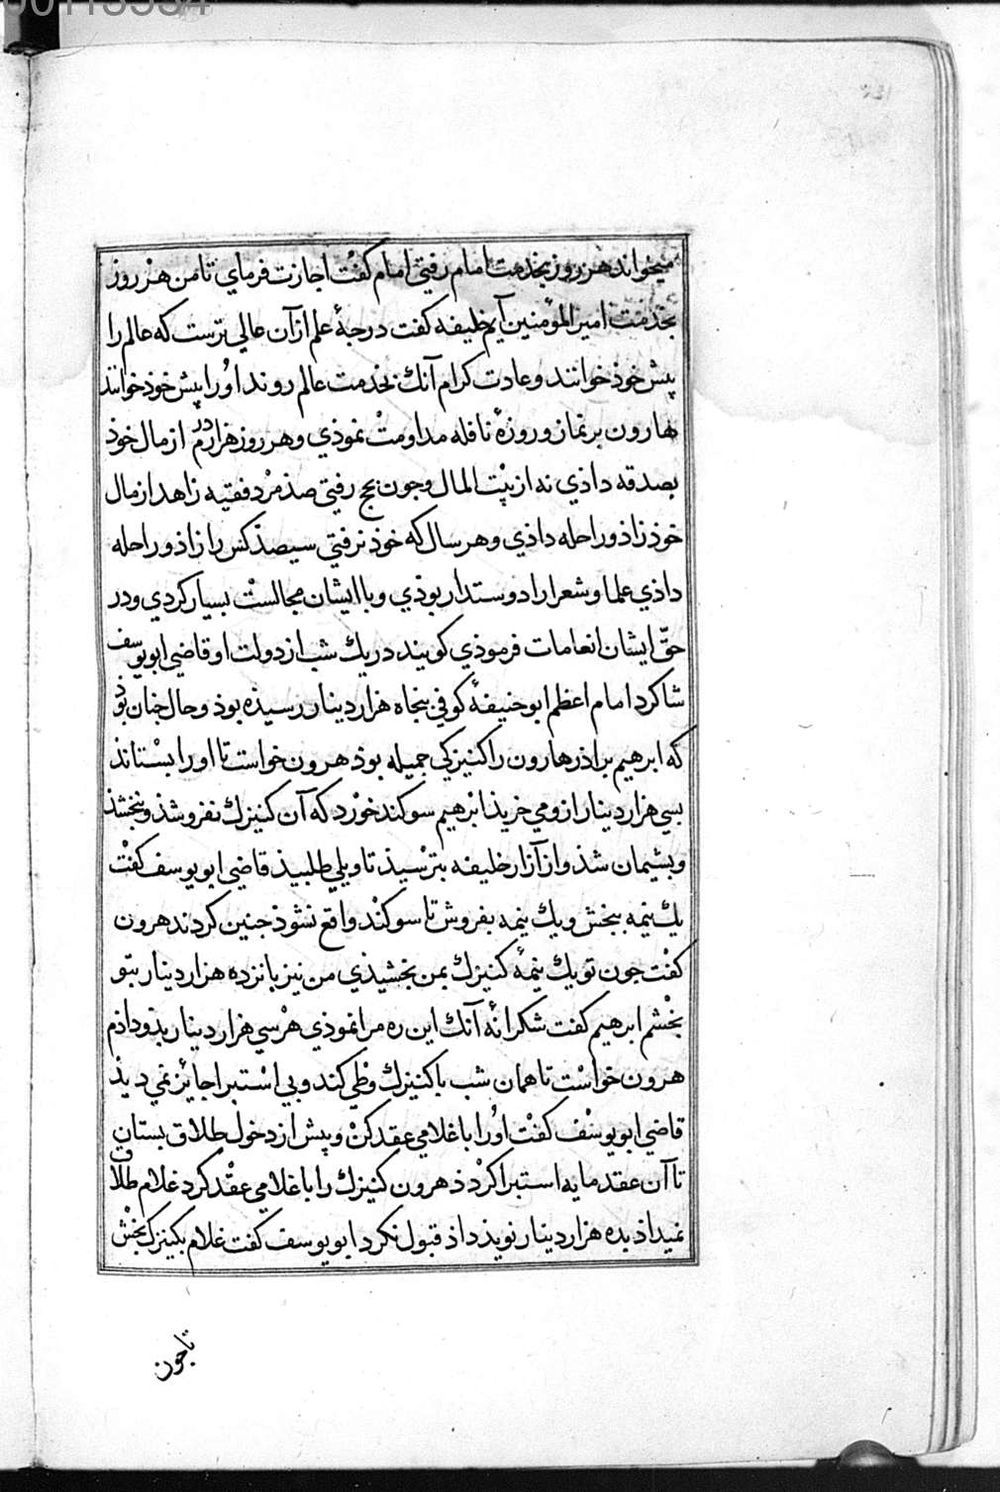 00113334
میخواند هر روز بخدمت امام رفتی امام کفت اجازت فرمای تا من هر روز
بخدمت امیر المؤمنین آیم خلیفه کفت درجهٔ علم از آن عالی ترست که عالم را
پیش خوذ خوانند و عادت کرام آنک بخدمت عالم روند او را پیش خوذ خوانند
هارون بر نماز و روزهٔ نافله مداومت نموذی و هر روز هزار درم از مال خوذ
بصدقه داذی نه از بیت المال و جون بحج رفتی صذ مرد فقیه زاهد از مال
خوذ زاذ و راحله داذی و هر سال که خوذ نرفتی سیصذ کس را زاذ و راحله
داذی علما و شعرا را دوستدار بوذی و با ایشان مجالست بسیار کردی و در
حقّ ایشان انعامات فرموذی کویند در یک شب از دولت او قاضی ابو یوسف
شاکرد امام اعظم ابو حنیفهٔ کوفی بنجاه هزار دینار رسیذه بوذ و حال جنان بوذ
که ابرهیم براذر هارون را کنیزکی جمیله بوذ هرون خواست تا او را بستاند
بسی هزار دینار ازو می خریذ ابرهیم سوکند خورد که آن کنیزک نفروشذ و نبخشذ
و بشیمان شذ و از آزار خلیفه بترسیذ تاویلی طلبیذ قاضی ابو یوسف کفت
یک نیمه ببخش و یک نیمه بفروش تا سوکند واقع نشوذ جنین کردند هرون
کفت جون تو یک نیمهٔ کنیزک بمن بخشیذی من نیز بانزده هزار دینار بتو
بخشم ابرهیم کفت شکرانهٔ آنک این ره مرا نموذی هر سی هزار دینار بذو داذم
هرون خواست تا همان شب با کنیزک وطی کند و بی استبرا جائز نمی دیذ
قاضی ابو یوسف کفت او را با غلامی عقد کن و پیش از دخول طلاق بستان
تا آن عقد مایه استبرا کردذ هرون کنیزک را با غلامی عقد کرد غلام طلاق
نمیداذ بده هزار دینار نویذ داذ قبول نکرد ابو یوسف کفت غلام بکنیزک بخش
تا جون